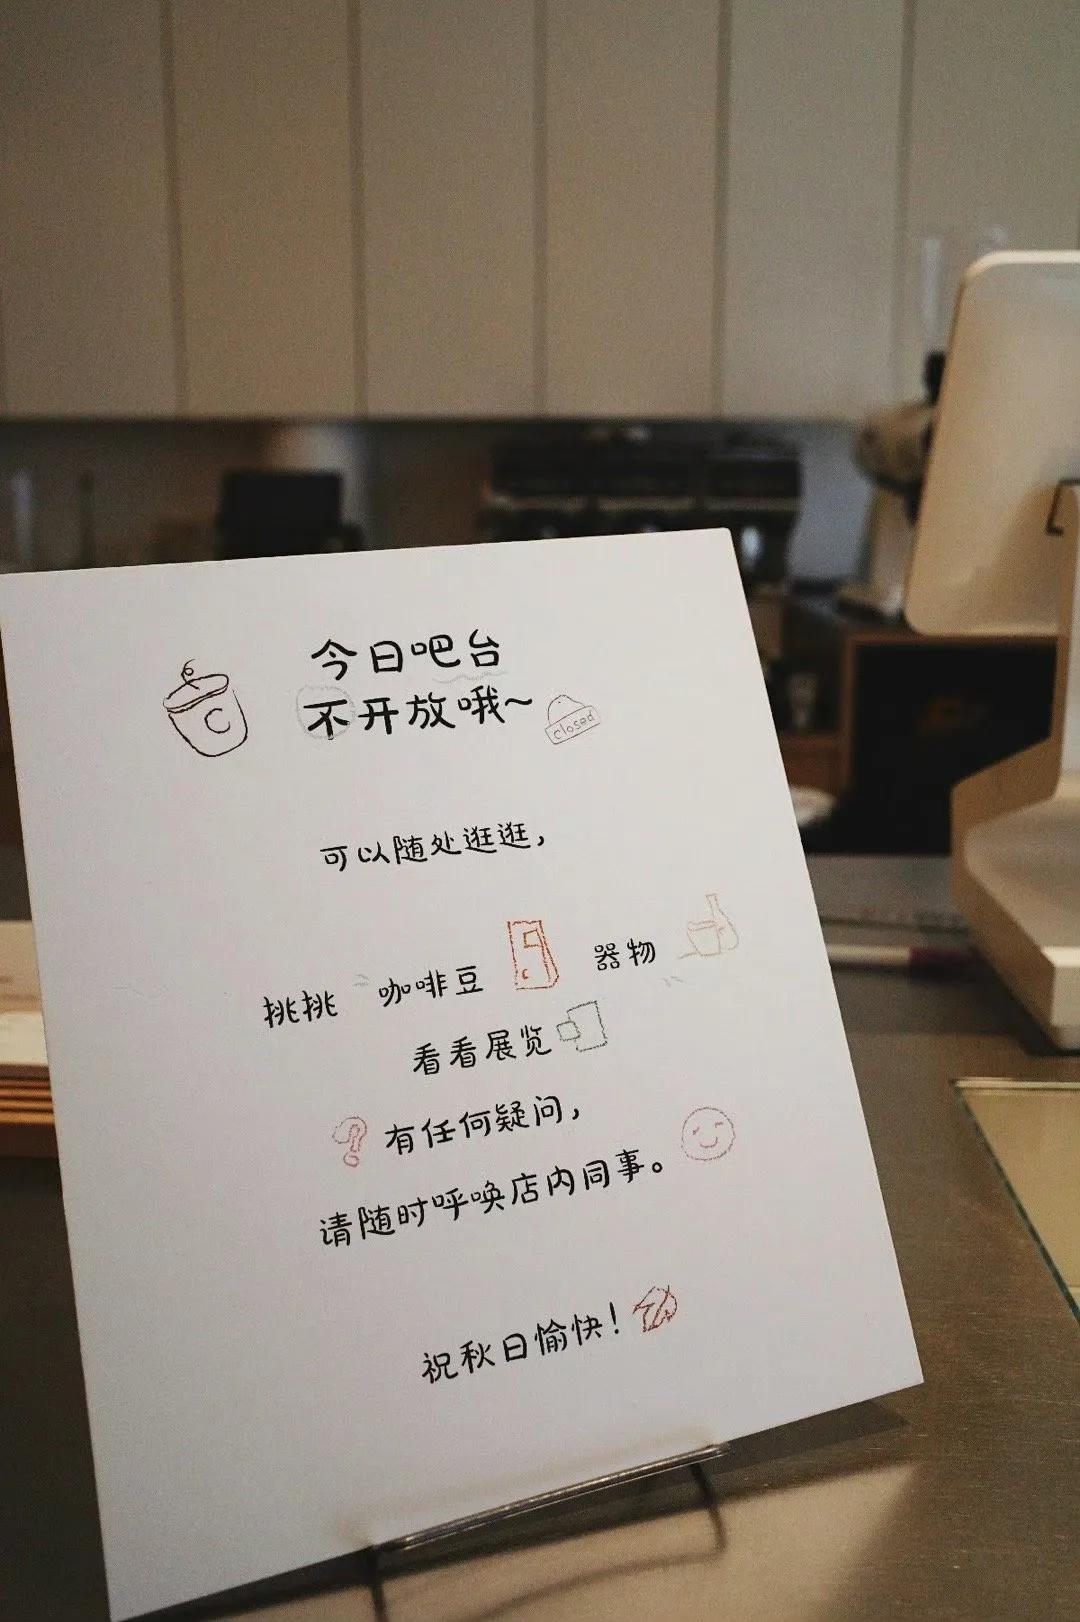 今日吧台
不开放哦~
closed
可以随处逛逛，
挑挑 咖啡豆 器物
看看展览
? 有任何疑问，
请随时呼唤店内同事。
祝秋日愉快！